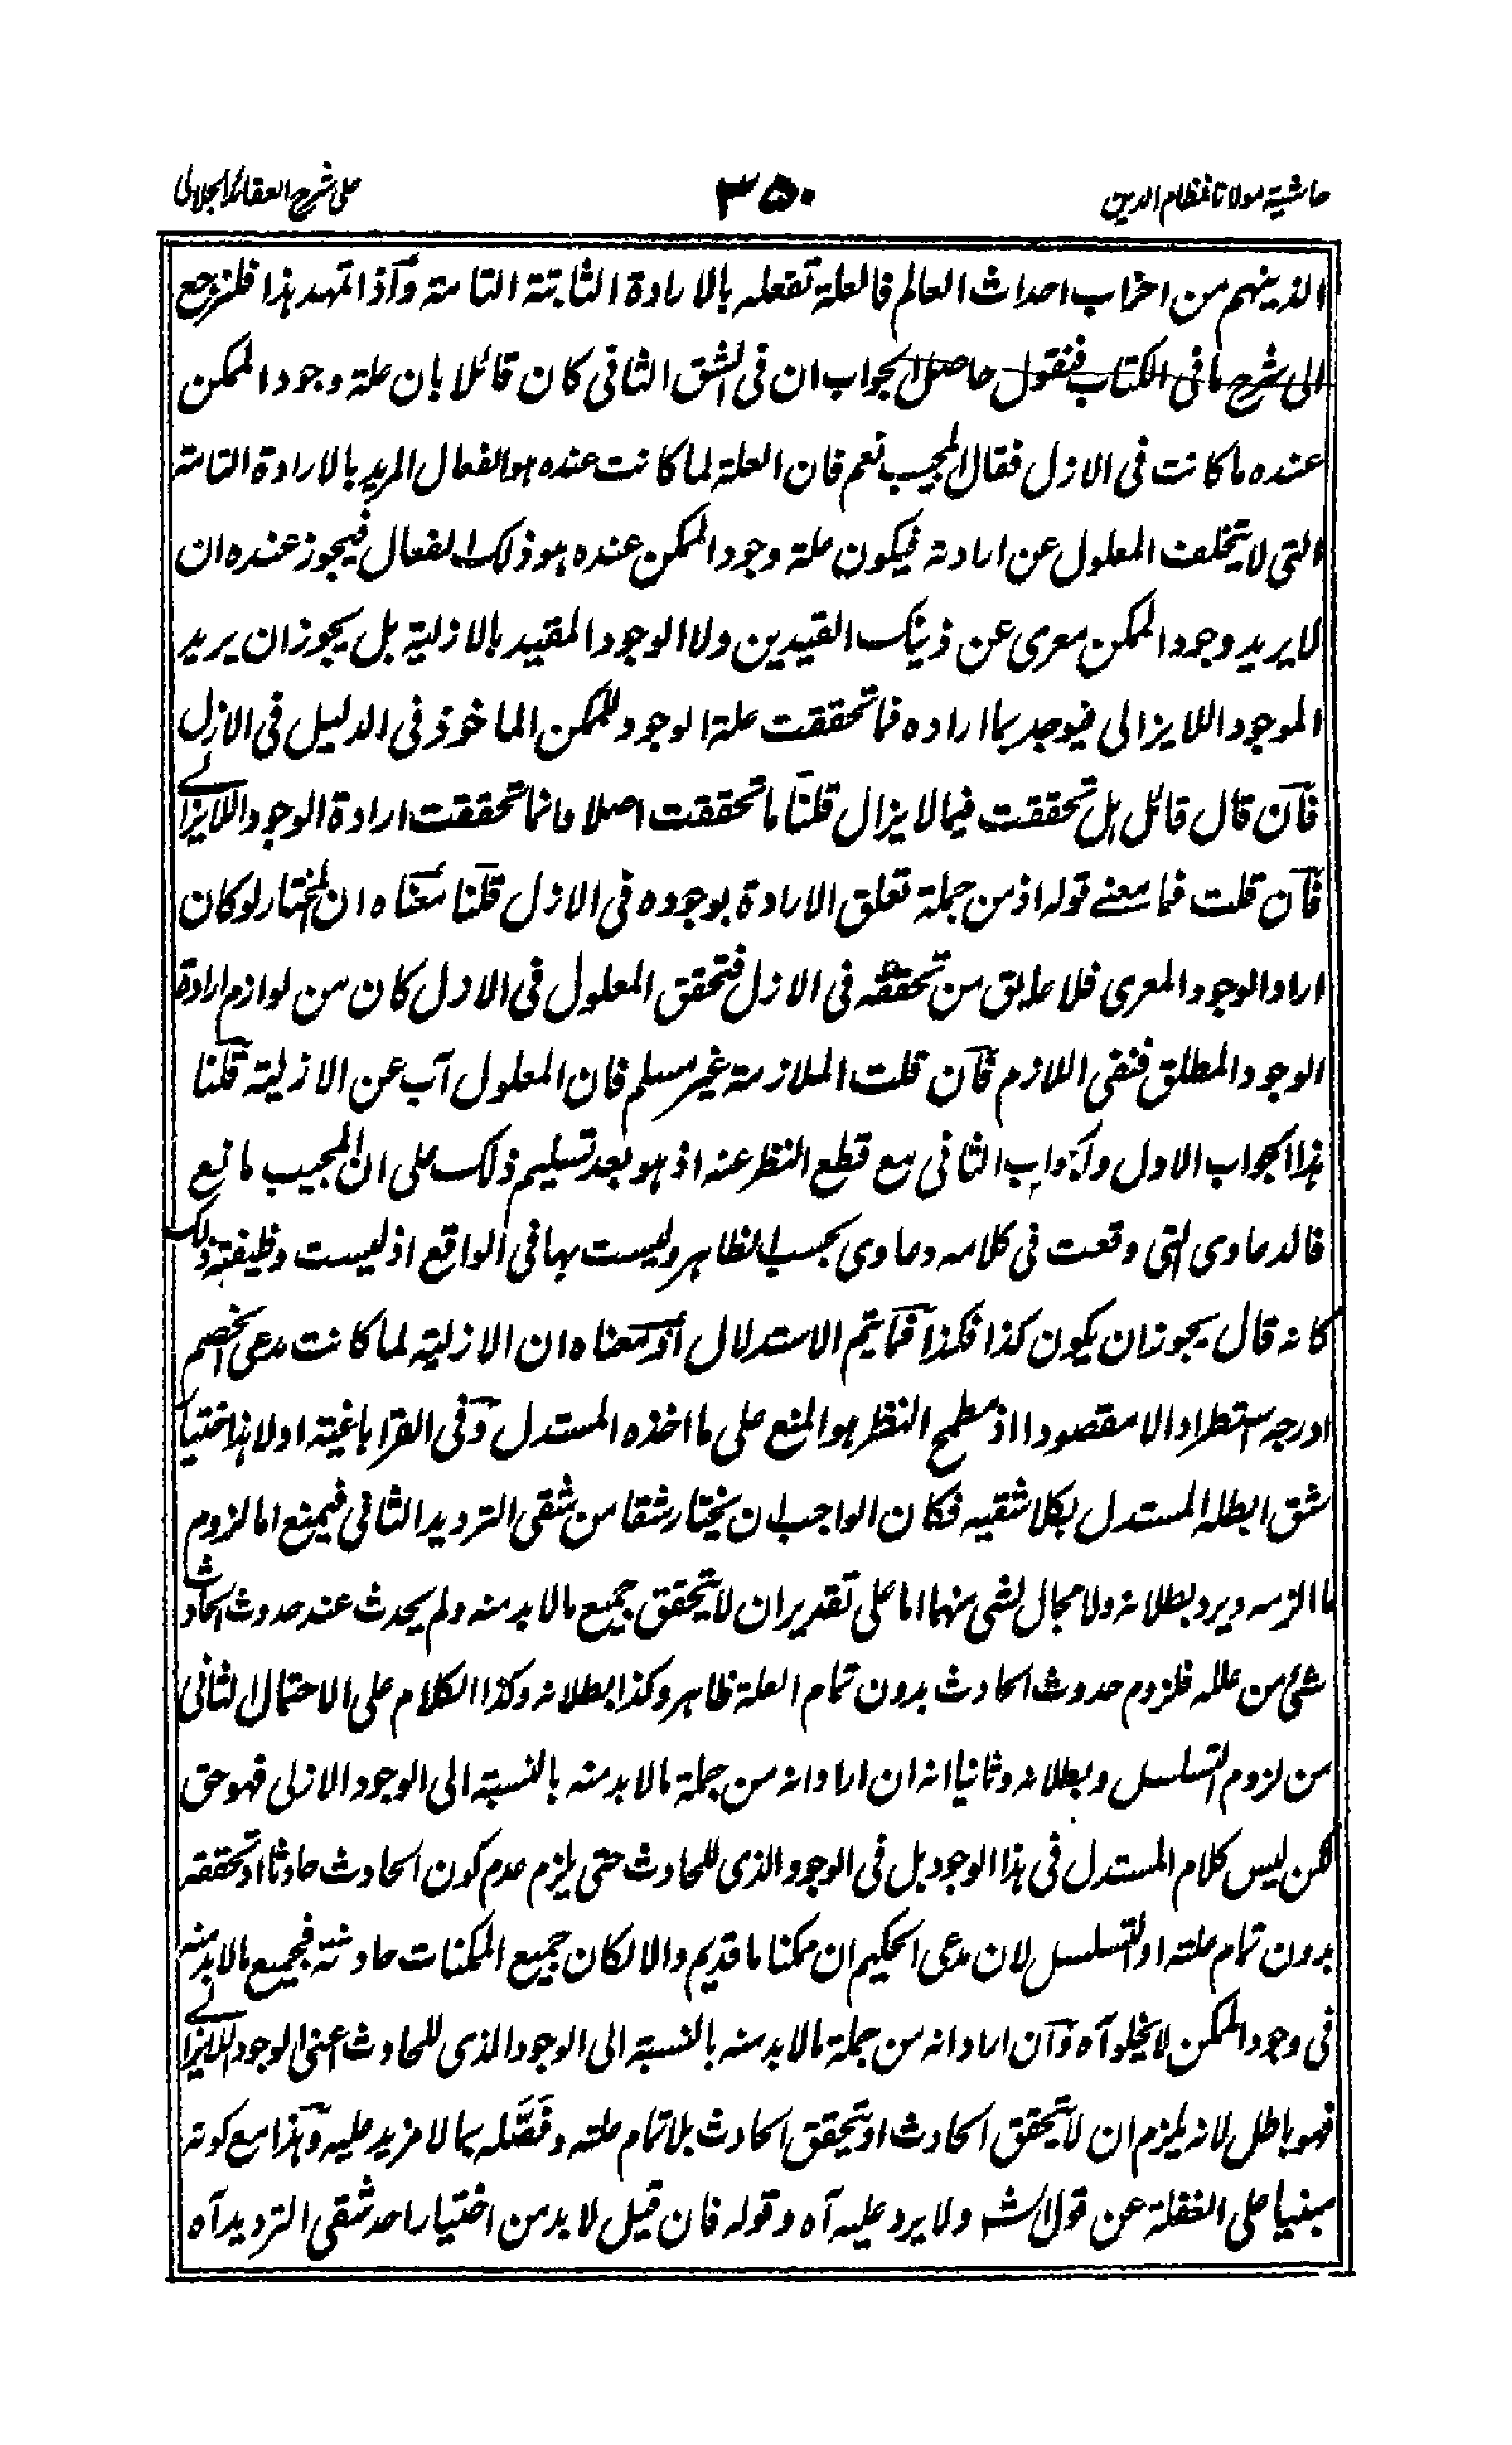 حاشية مولانا نظام الدين ٣٥٠ على شرح العقائد الجلالى
الذ ينهم من احزاب احداث العالم فالعلة تفعله بالارادة الثابتة التامة وآذا تمهد هذا فلنرجع
الى شرح ما فى الكتاب فنقول حاصل الجواب ان فى الشق الثانى كان قائلا بان علة وجود الممكن
عنده ما كانت فى الازل فقال المجيب نعم فان العلة لما كانت عنده هو الفعال المريد بالارادة التامة
التى لا يتخلف المعلول عن ارادته فيكون علة وجود الممكن عنده هو ذلك الفعال فيجوز عنده ان
لا يريد وجود الممكن معرى عن ذينك القيدين ولا الوجود المقيد بالازلية بل يجوز ان يريد
الموجود اللا يزالى فيوجد بما اراده فما تحققت علة الوجود للممكن الماخوذ فى الدليل فى الازل
فآن قال قائل هل تحققت فيما لا يزال قلنآ ما تحققت اصلا فانما تحققت ارادة الوجود اللايزالے
فآن قلت فما معنے قوله اذ من جملة تعلق الارادة بوجوده فى الازل قلنا معناه ان المختار لو كان
اراد الوجود المعرى فلا عليق من تحققه فى الازل فتحقق المعلول فى الازل كان من لوازم ارادة
الوجود المطلق فنفى اللازم فآن قلت الملازمة غير مسلم فان المعلول آب عن الازلية قلنا
هذا الجواب الاول والجواب الثانى مع قطع النظر عنه اذ هو بعد تسليم ذلك على ان المجيب مانع
فالدعاوى التى وقعت فى كلامه دعاوى بحسب الظاهر وليست بها فى الواقع اذ ليست وظيفته ذلك
كانه قال يجوز ان يكون كذا فكذا فما يتم الاستدلال أو معناه ان الازلية لما كانت مدعى الخصم
ادرجه استطرادا لا مقصودا اذ مطمح النظر هو المنع على ما اخذه المستدل وفى القراباغية اولا هذا اختيار
شق ابطله المستدل بكلا شقيه فكان الواجب ان يختار شقا من شقى الترديد الثانى فيمنع اما لزوم
ما الزمه ويرد بطلانه ولا مجال لشى منهما اما على تقدير ان لا يتحقق جميع مالا بد منه ولم يحدث عند حدوث الحادث
شئ من علله فلزوم حدوث الحادث بدون تمام العلة ظاهر وكذا بطلانه وكذا الكلام على الاحتمال الثانى
من لزوم التسلسل وبطلانه وثانيا انه ان اراد انه من جملة مالا بد منه بالنسبة الى الوجود الازلى فهو حق
لكن ليس كلام المستدل فى هذا الوجود بل فى الوجود الذى للحادث حتى يلزم عدم كون الحادث حادثا او تحققه
بدون تمام علته او التسلسل لان مدعى الحكيم ان ممكنا ما قديم والا لكان جميع الممكنات حادثة فجميع مالا بد منه
فى وجود الممكن لا يخلو آه وآن اراد انه من جملة مالا بد منه بالنسبة الى الوجود الذى للحادث اعنى الوجود اللايزالے
فهو باطل لانه يلزم ان لا يتحقق الحادث او يتحقق الحادث بلا تمام علته وفَصَّله بما لا مزيد عليه وهذا مع كونه
مبنيا على الغفلة عن قول الش ولا يرد عليه آه وقوله فان قيل لا بد من اختيار احد شقى الترديد آه